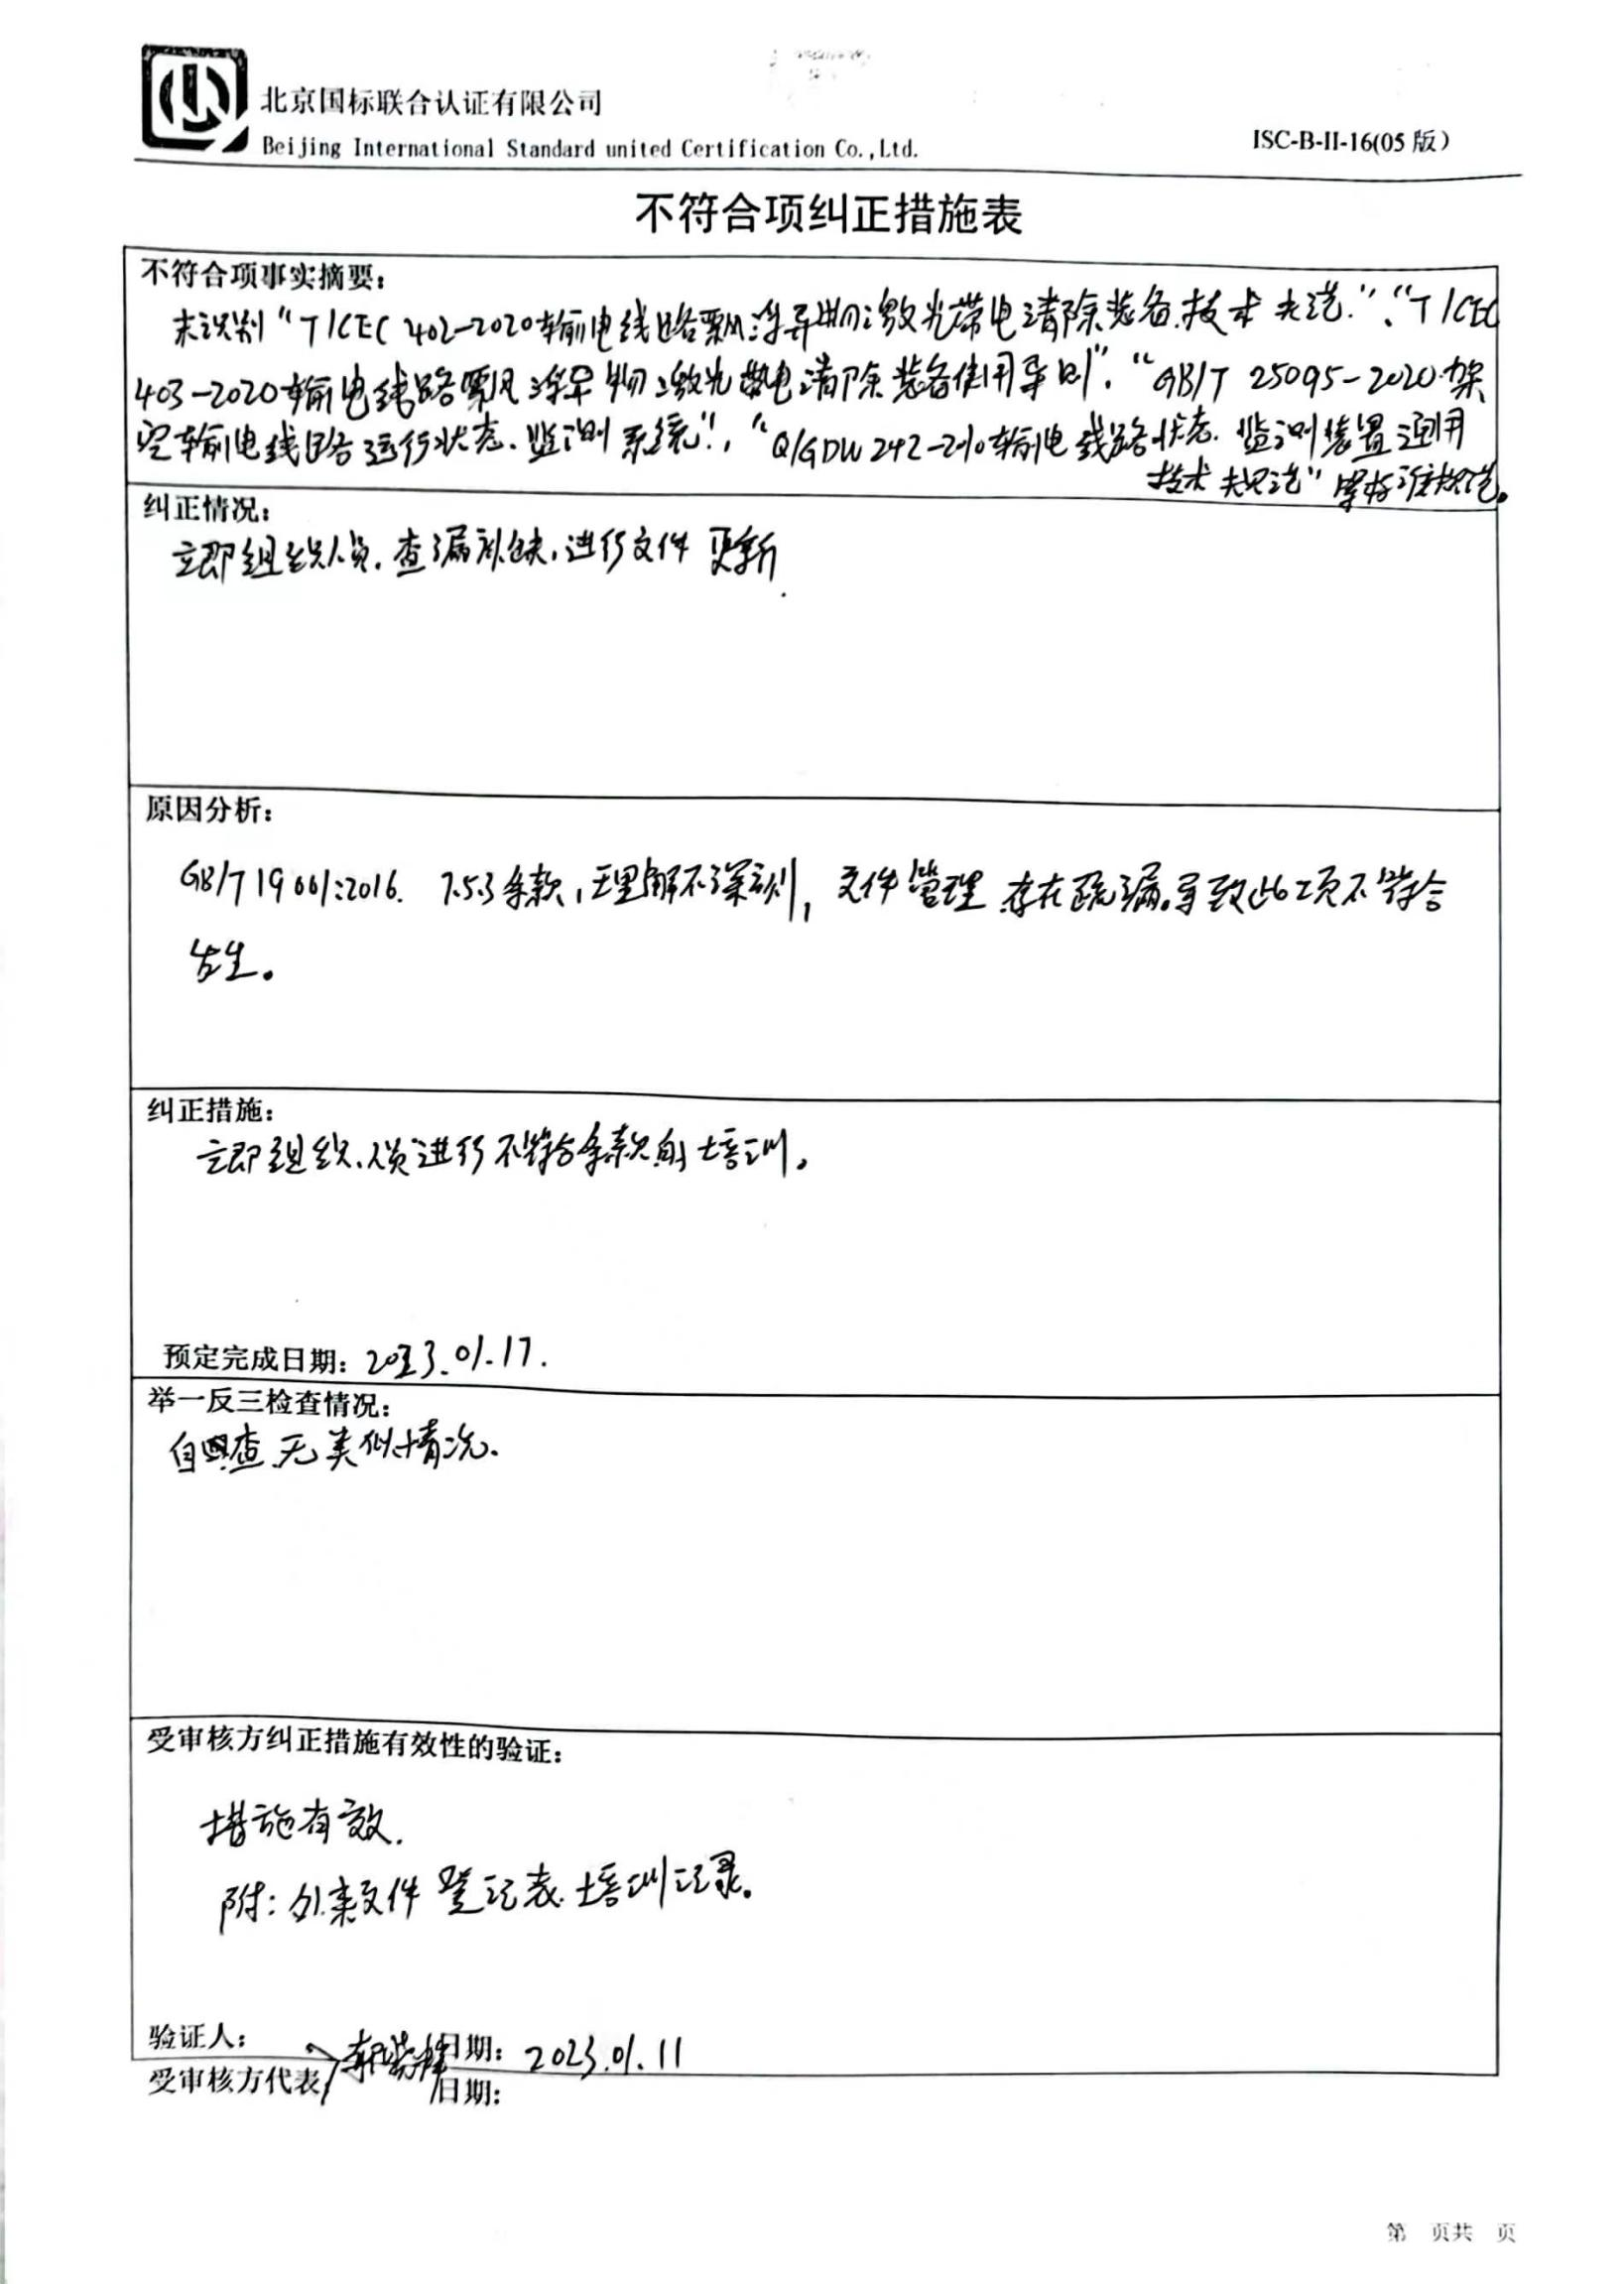 北京国标联合认证有限公司
Beijing International Standard united Certification Co.,Ltd.
ISC-B-II-16(05 版)
不符合项纠正措施表
不符合项事实摘要:
未识别“T/CEC 402-2020输电线路飘浮异物激光带电清除装备技术规范”、“T/CEC
403-2020输电线路飘浮异物激光带电清除装备使用导则”、“GB/T 25095-2020架
空输电线路运行状态监测系统”、“Q/GDW 242-2010输电线路状态监测装置通用
技术规范”等标准规范。
纠正情况:
立即组织人员,查漏补缺,进行文件更新.
原因分析:
GB/T19001:2016. 7.5.3条款,理解不深刻,文件管理存在疏漏。导致此项不符合
发生。
纠正措施:
立即组织人员进行不符合条款的培训。
预定完成日期: 2023.01.17.
举一反三检查情况:
自查无类似情况.
受审核方纠正措施有效性的验证:
措施有效.
附:外来文件登记表.培训记录。
验证人: 日期: 2023.01.11
受审核方代表 日期:
第 页共 页